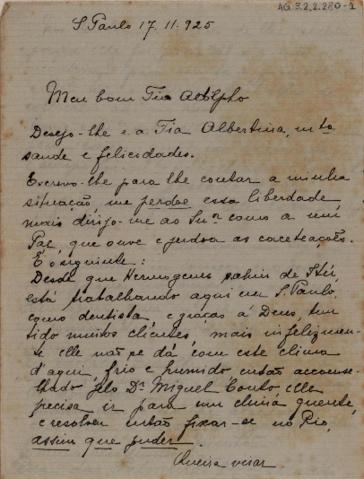 AG 3.2.2.280-1
S. Paulo 17.11.925
Meu bom Tio Adolpho
Desejo-lhe e a Tia Albertina, mta
saude e felicidades.
Escrevo-lhe para lhe contar a minha
situação, me perdoe essa liberdade,
mais dirijo-me ao Snr como a um
Pae, que ouve e perdoa as caceteações.
É o siguinte:
Desde que Hermogenes sahiu de
está trabalhando aqui em S. Paulo,
como dentista, e graças a Deus, tem
tido muitos clientes, mais infelizmen-
te elle não se dá com este clima
d'aqui, frio e humido então aconse-
lhado pelo Dr Miguel Couto elle
precisa ir para um clima quente,
e resolveu então fixar-se no Rio,
assim que puder.
Queira vêr